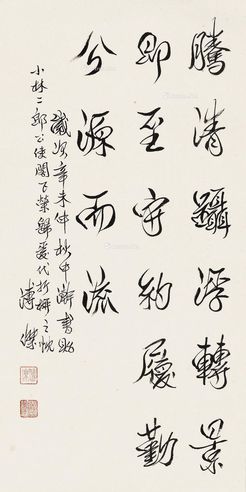 騰清躡浮轉景
即至守約履勤
分源而流
歲次辛未仲秋中澣書贈
小林二郎公使閣下榮歸爰代折柳之忱
溥傑